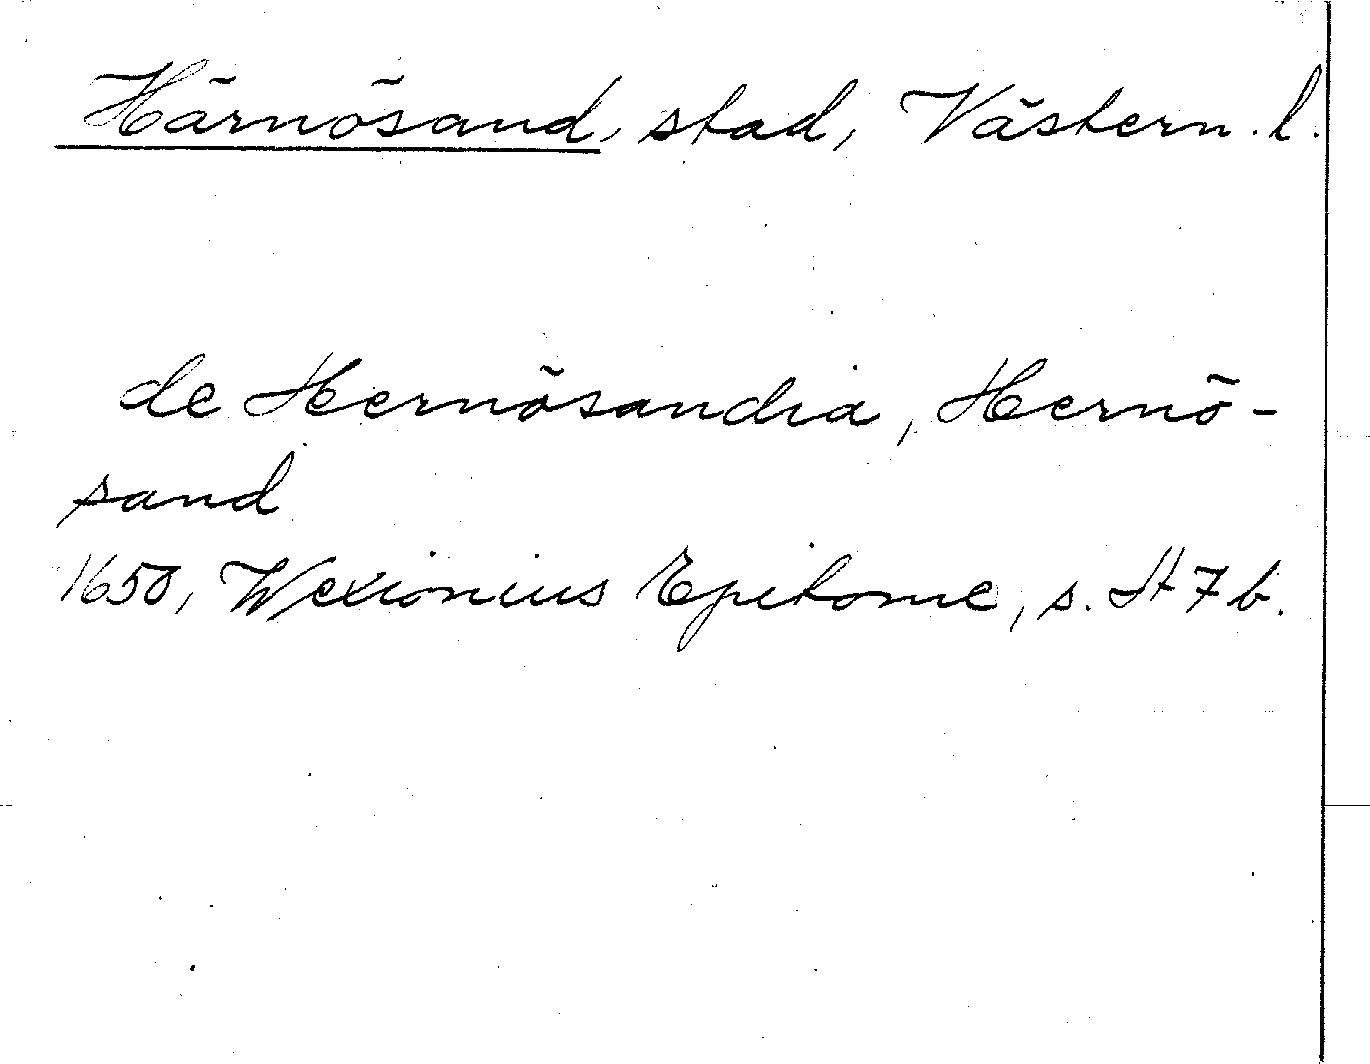 Härnösand, stad, Västern. l.
de Hernösandia, Hernö-
sand
1650, Wexionius Epitome, s. St 7 b.